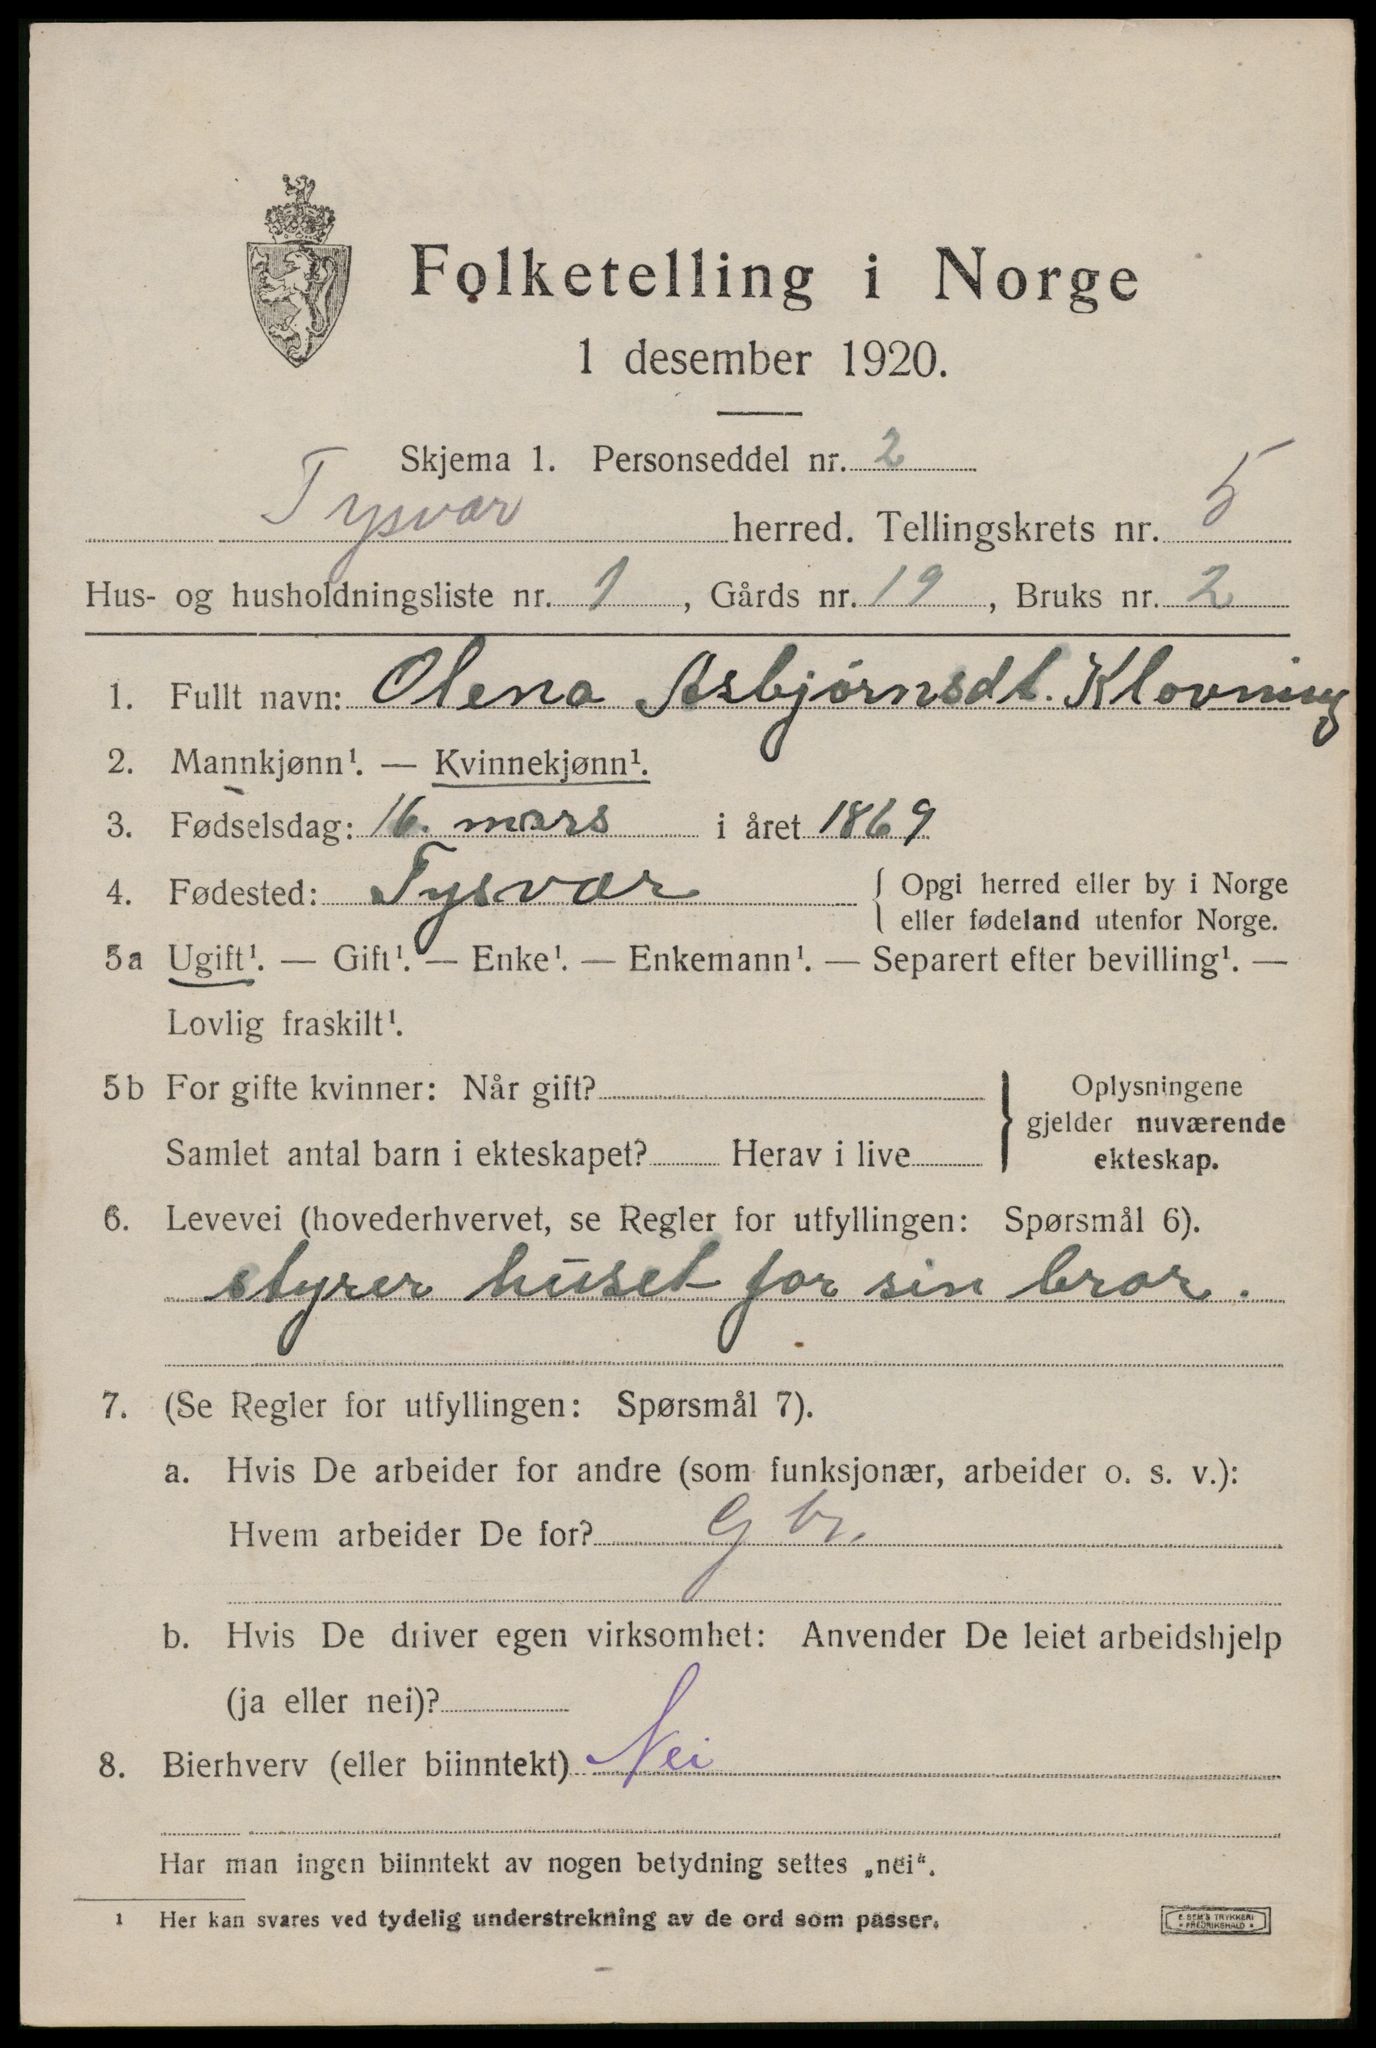 Folketelling i Norge
1 desember 1920.
Skjema 1. Personseddel nr. 2
Tysvær herred. Tellingskrets nr. 5
Hus- og husholdningsliste nr. 1, Gårds nr. 19, Bruks nr. 2
1. Fullt navn: Olena Asbjørnsdt. Klovning
2. Mannkjønn¹. — Kvinnekjønn¹.
3. Fødselsdag: 16. mars i året 1869
4. Fødested: Tysvær { Opgi herred eller by i Norge
eller fødeland utenfor Norge.
5a Ugift¹. — Gift¹. — Enke¹. — Enkemann¹. — Separert efter bevilling¹. —
Lovlig fraskilt¹.
5b For gifte kvinner: Når gift?
Samlet antal barn i ekteskapet? Herav i live
} Oplysningene
gjelder nuværende
ekteskap.
6. Levevei (hovederhvervet, se Regler for utfyllingen: Spørsmål 6).
styrer huset for sin bror.
7. (Se Regler for utfyllingen: Spørsmål 7).
a. Hvis De arbeider for andre (som funksjonær, arbeider o. s. v.):
Hvem arbeider De for? G br.
b. Hvis De driver egen virksomhet: Anvender De leiet arbeidshjelp
(ja eller nei)?
8. Bierhverv (eller biinntekt) Nei
Har man ingen biinntekt av nogen betydning settes „nei“.
1 Her kan svares ved tydelig understrekning av de ord som passer.
E. SEM'S TRYKKERI
FREDRIKSHALD